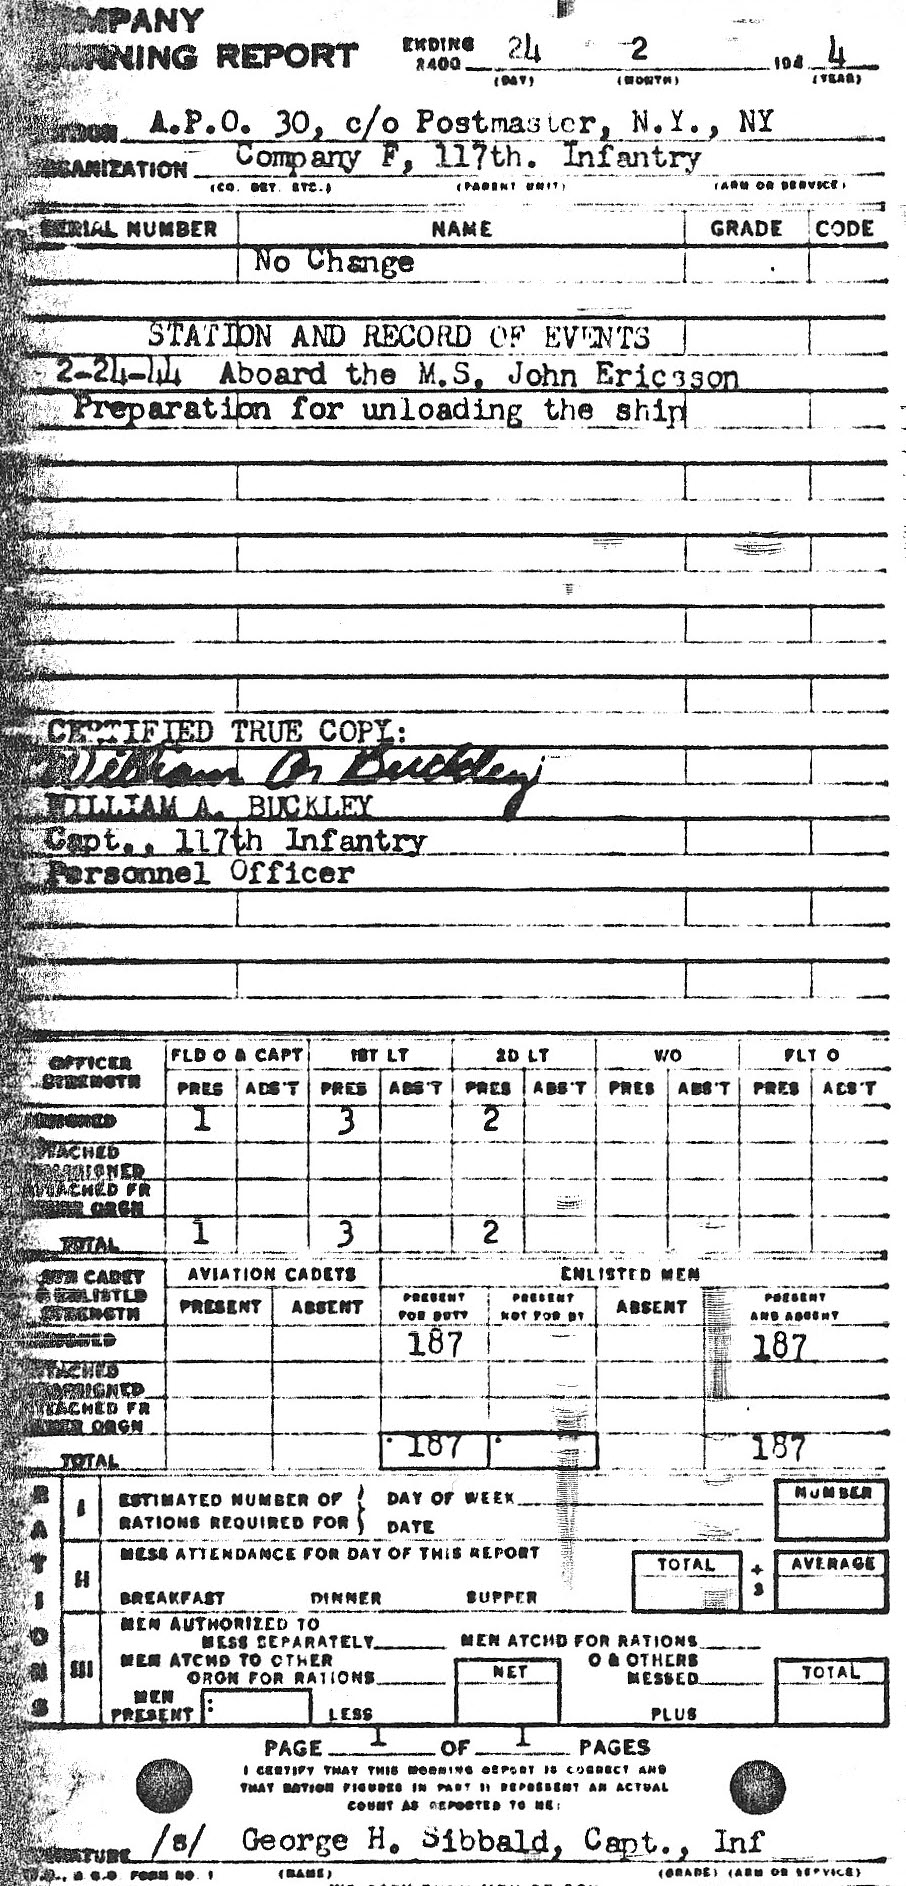 COMPANY
MORNING REPORT ENDING 2400 24 2 1944
(DAY) (MONTH) (YEAR)
STATION A.P.O. 30, c/o Postmaster, N.Y., NY
ORGANIZATION Company F, 117th. Infantry
(CO. DET. ETC.) (PARENT UNIT) (ARM OR SERVICE)
SERIAL NUMBER NAME GRADE CODE
No Change
STATION AND RECORD OF EVENTS
2-24-44 Aboard the M.S. John Ericsson
Preparation for unloading the ship
CERTIFIED TRUE COPY:
William A. Buckley
WILLIAM A. BUCKLEY
Capt., 117th Infantry
Personnel Officer
OFFICER STRENGTH FLD O & CAPT 1ST LT 2D LT WO FLT O
PRES ABS'T PRES ABS'T PRES ABS'T PRES ABS'T PRES ABS'T
ASSIGNED 1 3 2
ATTACHED
UNASSIGNED
ATTACHED FR
OTHER ORGN
TOTAL 1 3 2
AVN CADET & ENLISTED STRENGTH AVIATION CADETS ENLISTED MEN
PRESENT ABSENT PRESENT FOR DUTY PRESENT NOT FOR DY ABSENT PRESENT AND ABSENT
ASSIGNED 187 187
ATTACHED
UNASSIGNED
ATTACHED FR
OTHER ORGN
TOTAL 187 187
RATIONS
I ESTIMATED NUMBER OF RATIONS REQUIRED FOR } DAY OF WEEK NUMBER
DATE
II MESS ATTENDANCE FOR DAY OF THIS REPORT TOTAL ÷ 3 AVERAGE
BREAKFAST DINNER SUPPER
III MEN AUTHORIZED TO
MESS SEPARATELY MEN ATCHD FOR RATIONS
MEN ATCHD TO OTHER O & OTHERS
ORGN FOR RATIONS NET MESSED TOTAL
MEN PRESENT LESS PLUS
PAGE 1 OF 1 PAGES
I CERTIFY THAT THIS MORNING REPORT IS CORRECT AND
THAT RATION FIGURES IN PART II REPRESENT AN ACTUAL
COUNT AS REPORTED TO ME:
SIGNATURE /s/ George H. Sibbald, Capt., Inf
W.D., A.G.O. FORM NO. 1 (NAME) (GRADE) (ARM OR SERVICE)